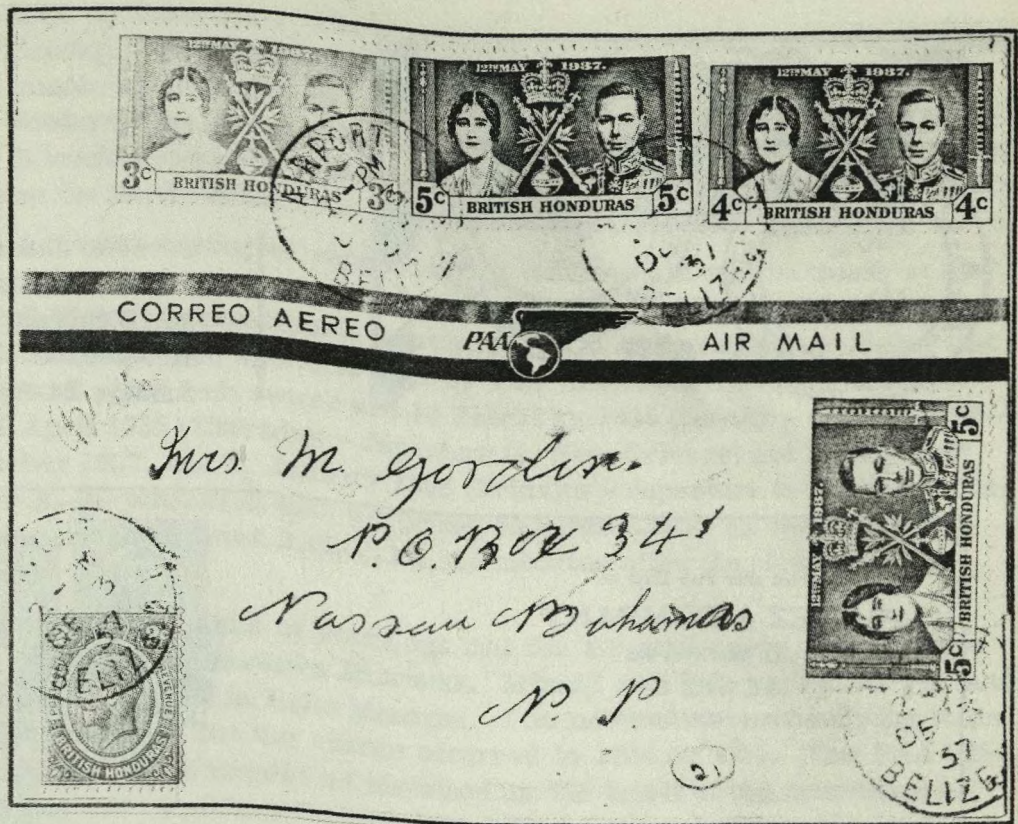 12TH MAY 1937.
3c BRITISH HONDURAS 3c
12TH MAY 1937.
5c BRITISH HONDURAS 5c
12TH MAY 1937.
4c BRITISH HONDURAS 4c
AIRPORT
PM
BELIZE
DE
37
BELIZE
CORREO AEREO PAA AIR MAIL
Mrs. M. Gordon.
P.O. Box 341
Nassau Bahamas
N P
12TH MAY 1937.
5c BRITISH HONDURAS 5c
DE
3
37
BELIZE
REVENUE
BRITISH HONDURAS
DE
37
BELIZE
21